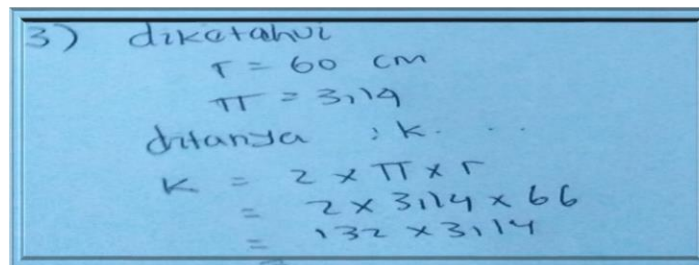 3) diketahui
r = 60 cm
π = 3,14
ditanya : k. ...
K = 2 × π × r
= 2 × 3,14 × 66
= 132 × 3,14